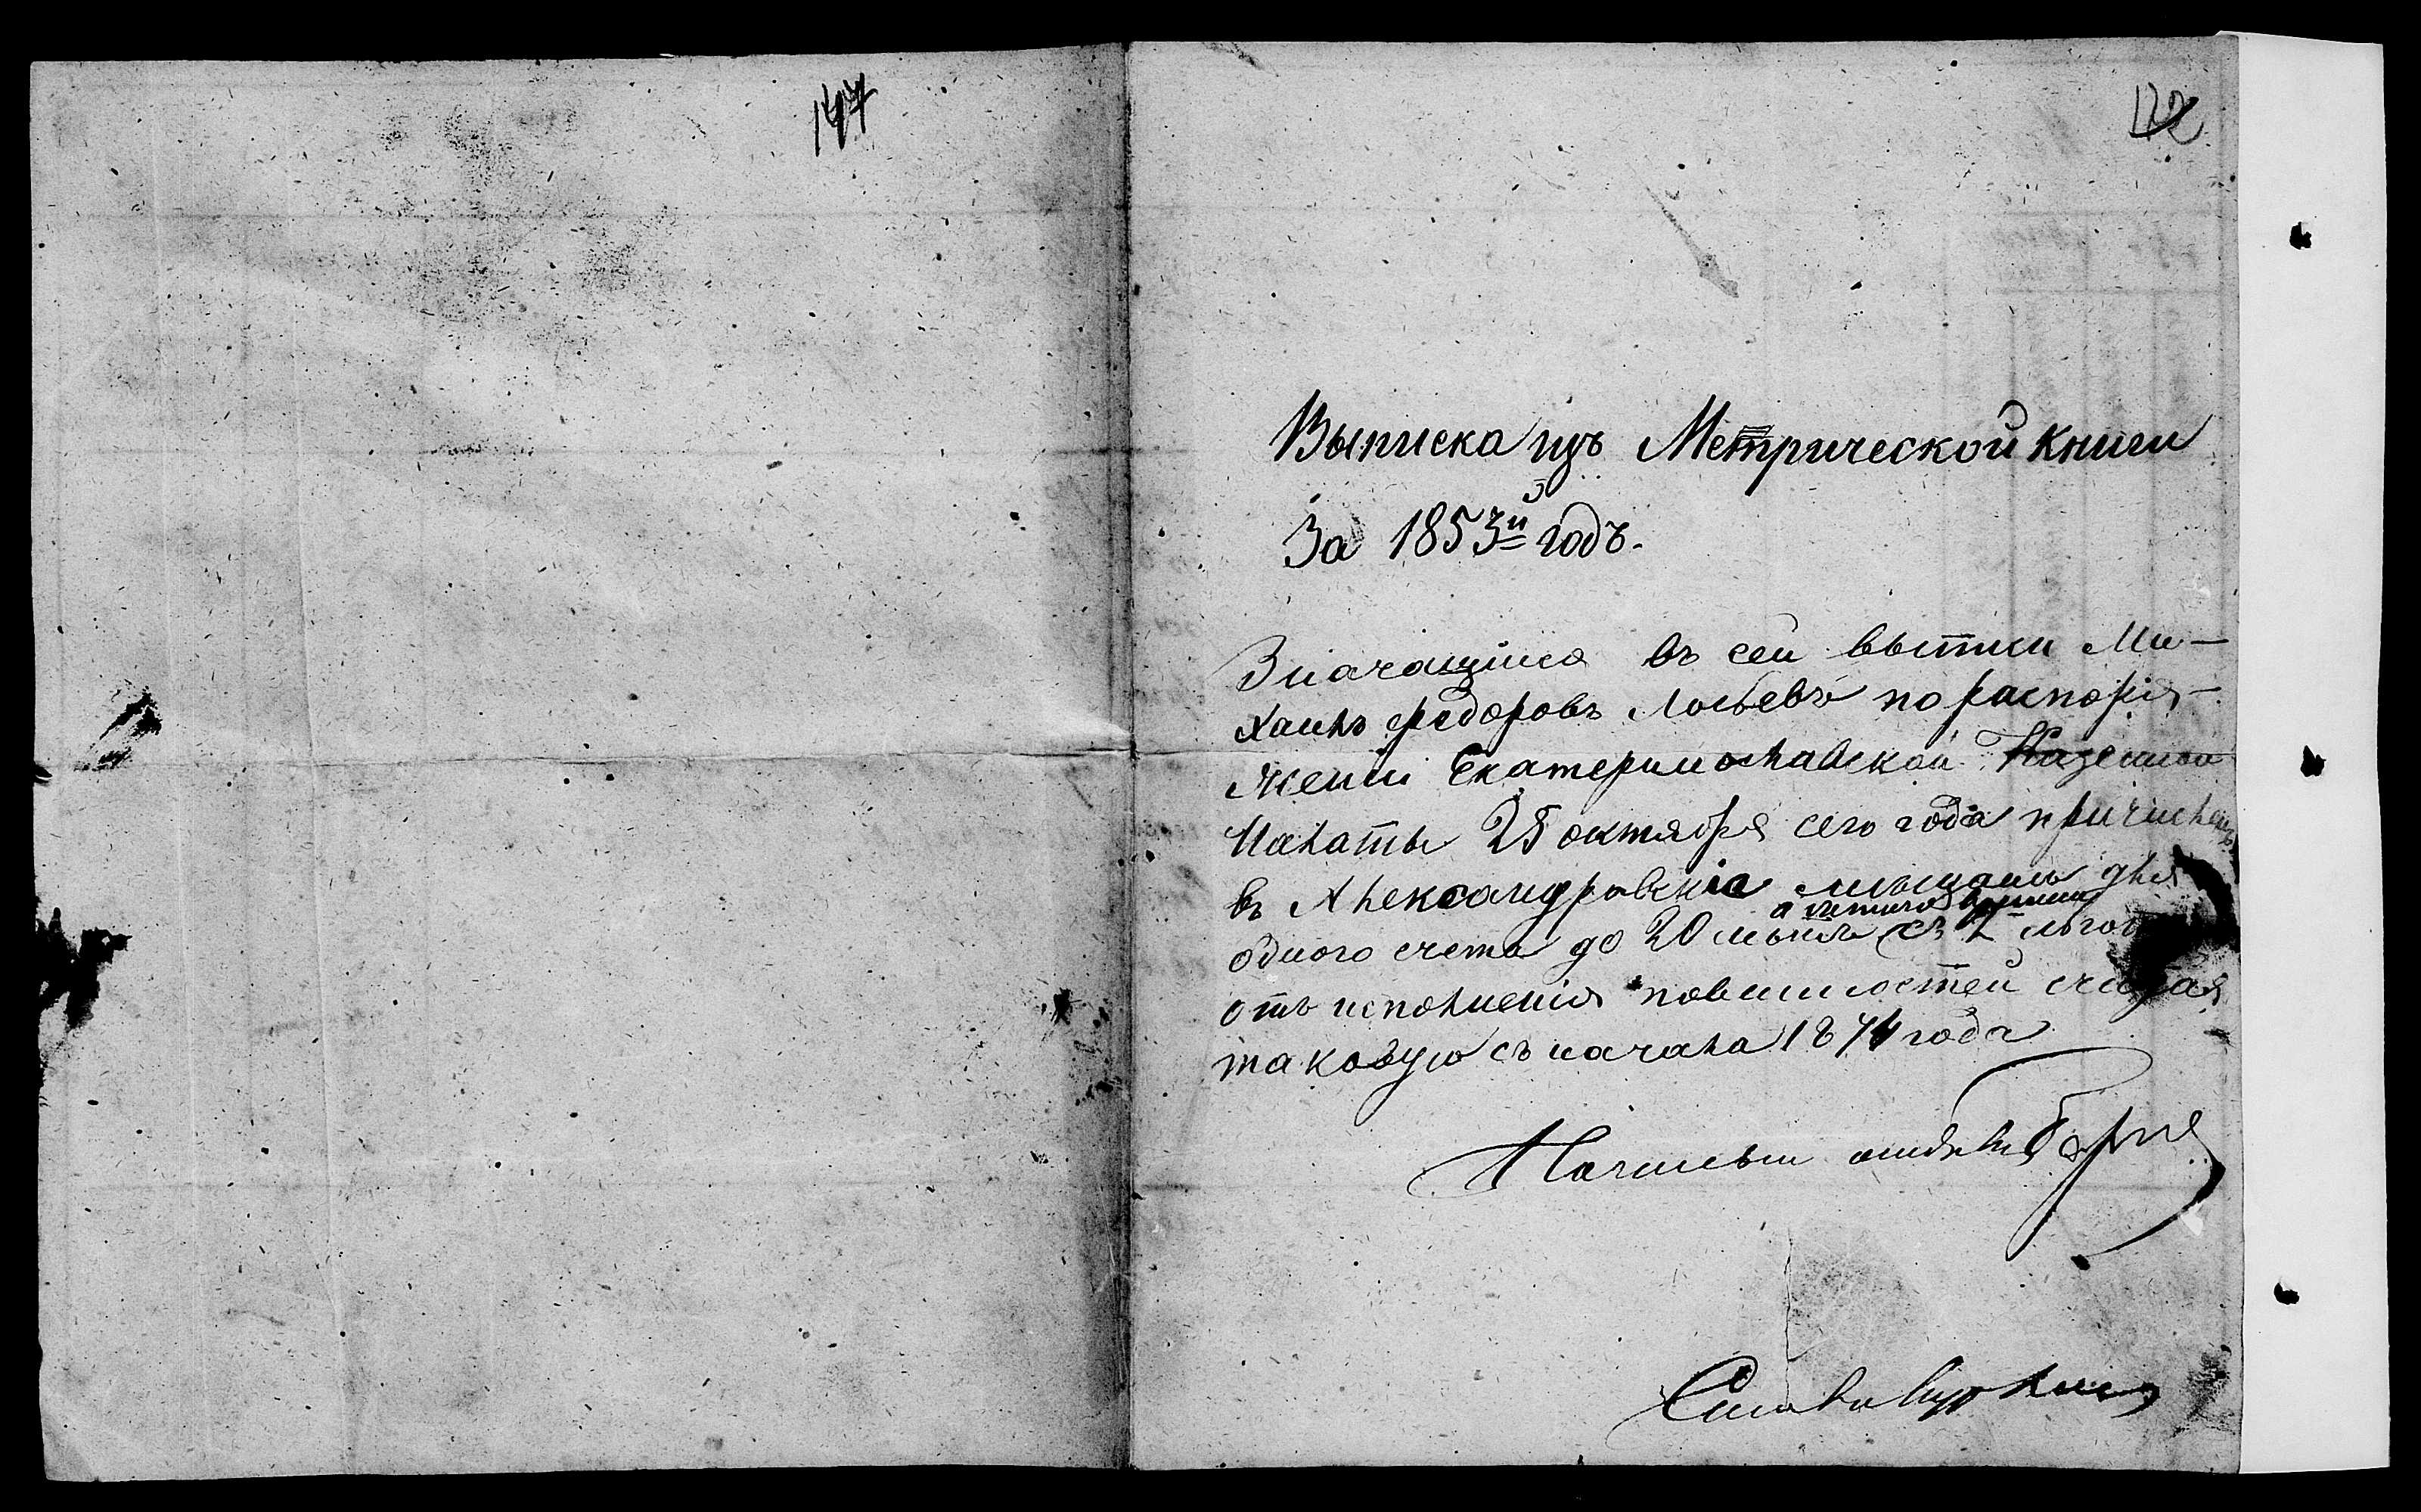 147
122
Выписка изъ Метрической Книги
За 1853й годъ.
Значащійся въ сей выписи Ми-
хаилъ Федоровъ Лосьевъ по распоря-
женіи Екатеринославской Казенной
Палаты 25 октября сего года причисленъ
въ Александровскіе мещане для
одного счета до 20 съ льгот
отъ исполненія повинностей считая
таковую съ начала 1874 года